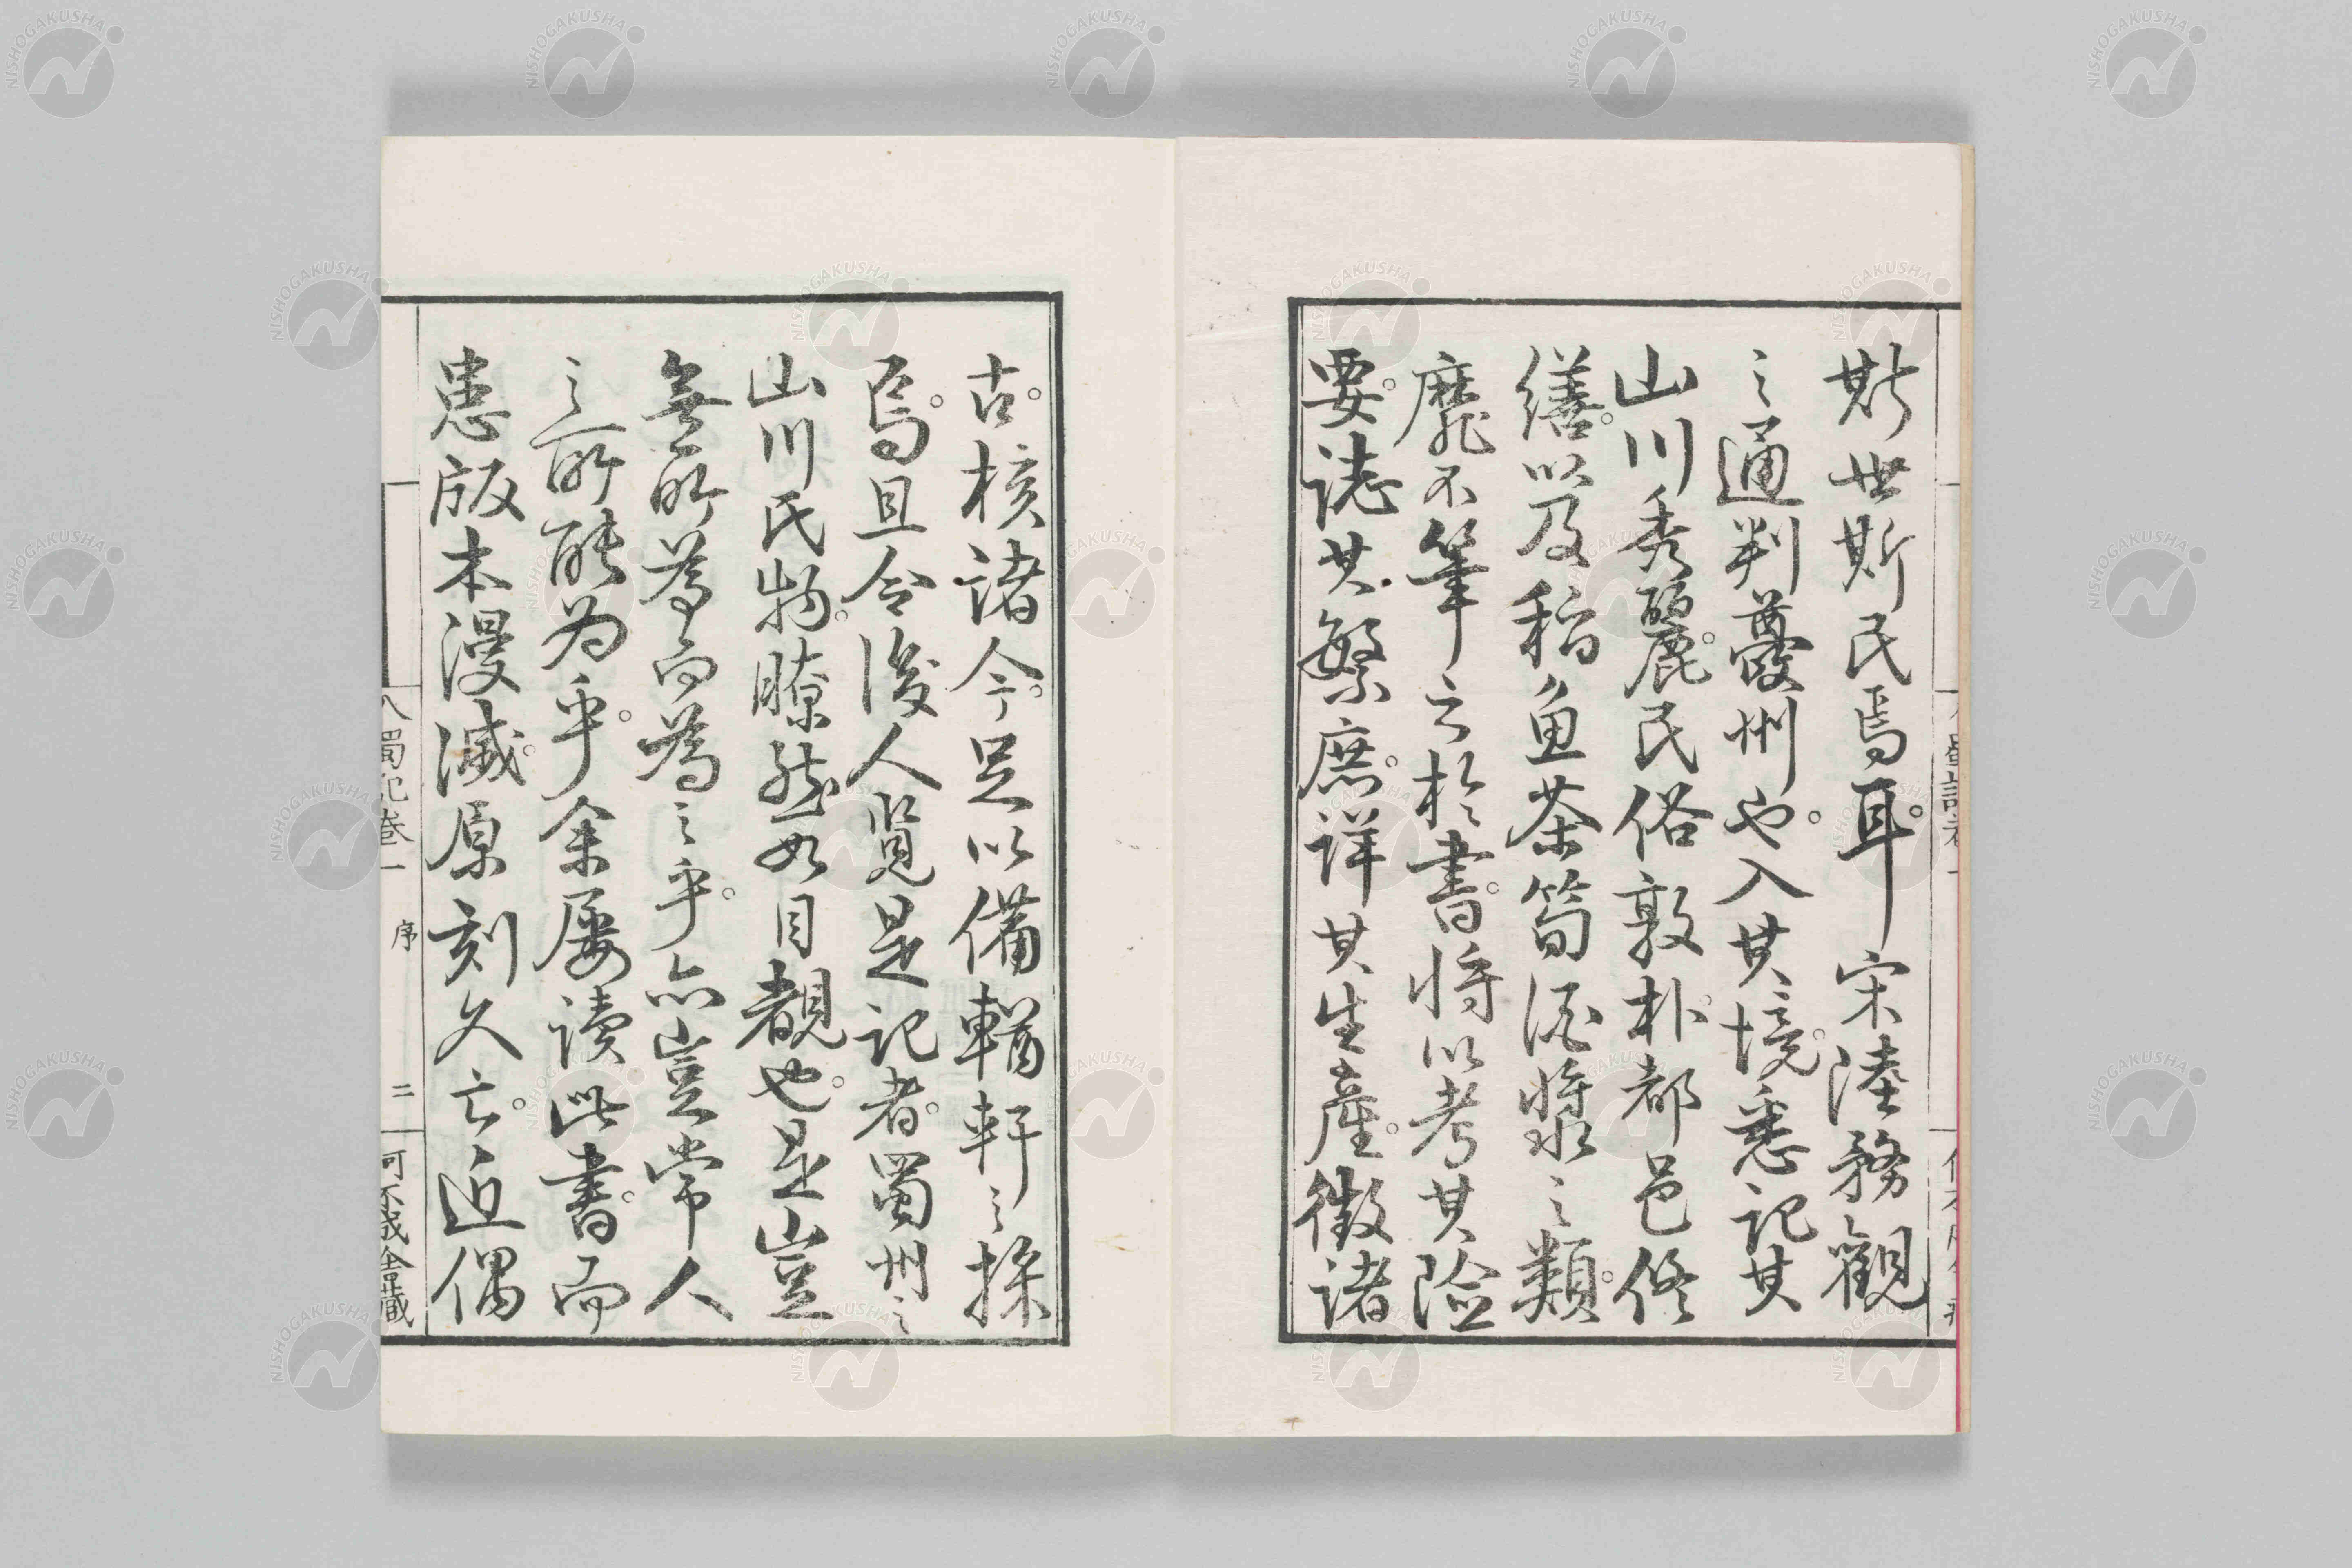 斯世斯民焉耳。宋陸務觀
之通判夔州也。入其境。悉記其
山川秀麗。民俗敦朴。都邑修
繕。以及稻魚茶筍酒漿之類。
靡不筆之於書。將以考其險
要。誌其繁庶。詳其生產。徵諸
古。核諸今。足以備輶軒之採
焉。且令後人覽是記者。蜀州之
山川民物。瞭然如目覩也。是豈
無所為而為之乎。亦豈常人
之所能为乎。余屢讀此書。而
患版本漫滅。原刻久亡。近偶
入蜀記卷一
序
二
NISHOGAKUSHA